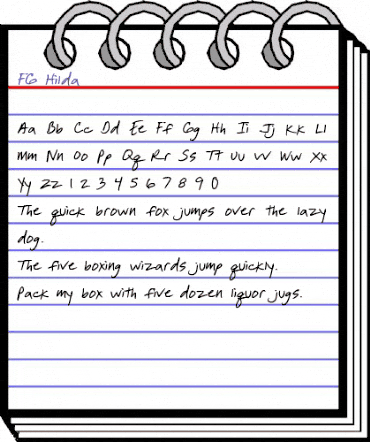 FG Hilda
Aa Bb Cc Dd Ee Ff Gg Hh Ii Jj Kk Ll
Mm Nn Oo Pp Qq Rr Ss Tt Uu Vv Ww Xx
Yy Zz 1 2 3 4 5 6 7 8 9 0
The quick brown fox jumps over the lazy
dog.
The five boxing wizards jump quickly.
Pack my box with five dozen liquor jugs.